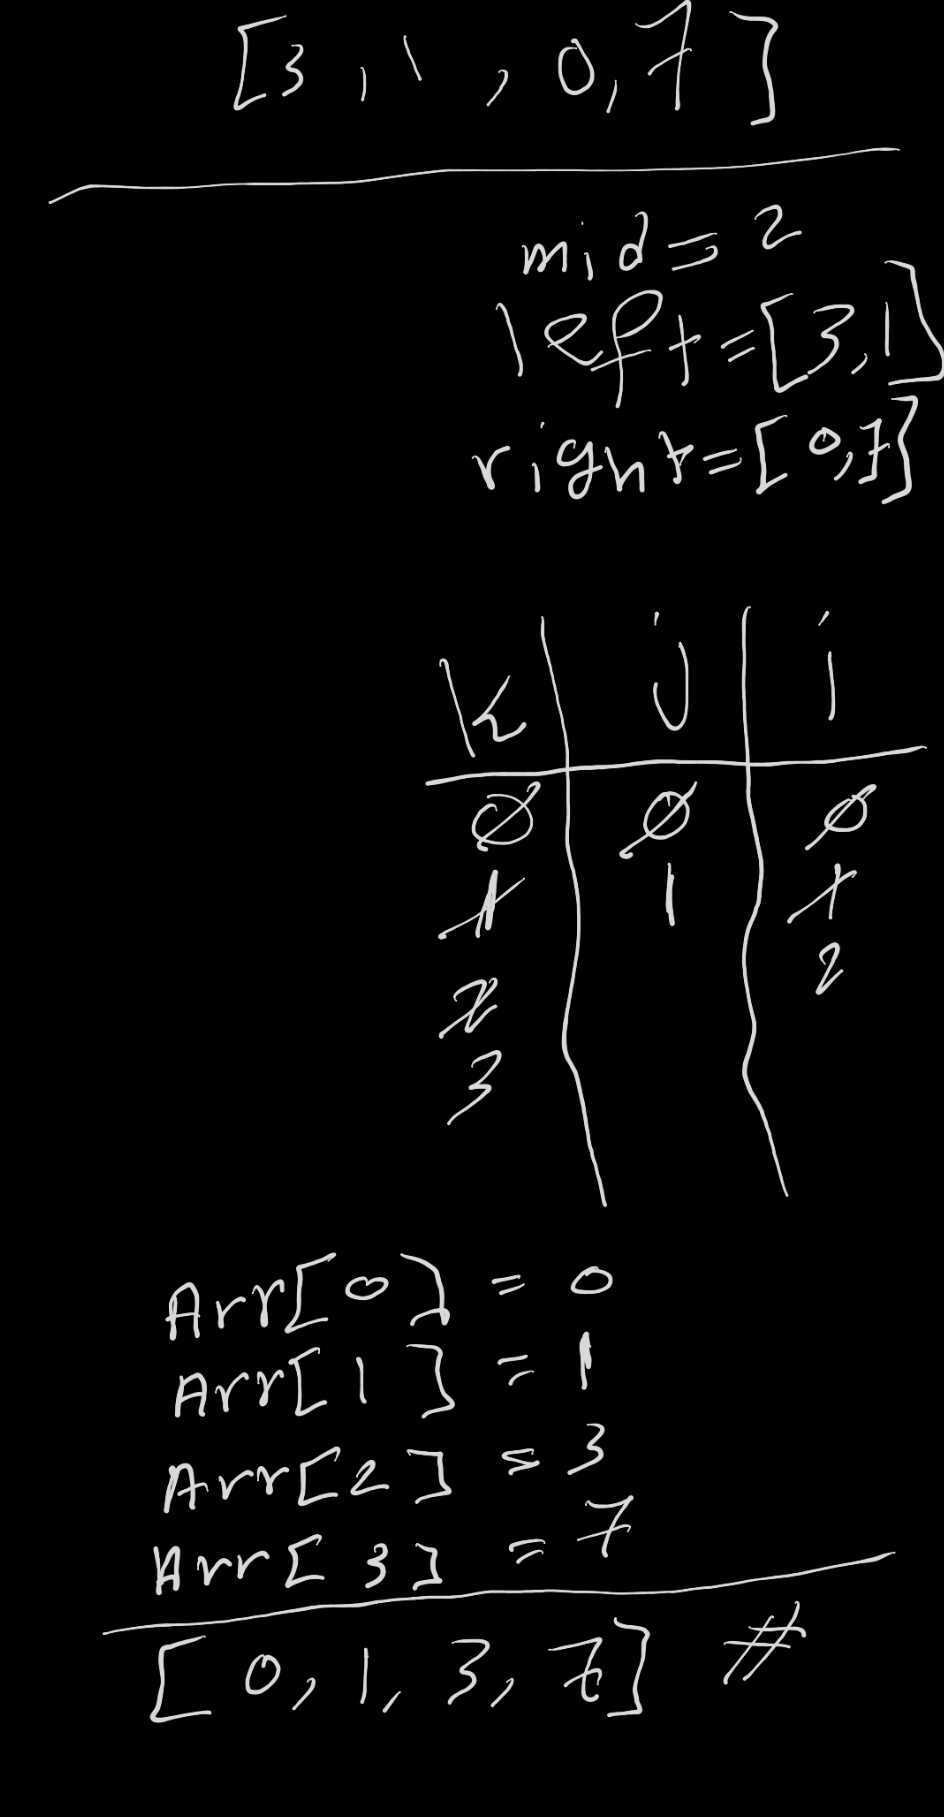 [3, 1, 0, 7]
mid = 2
left = [3, 1]
right = [0, 7]
k j i
0 0 0
1 1 1
2 2
3
Arr[0] = 0
Arr[1] = 1
Arr[2] = 3
Arr[3] = 7
[0, 1, 3, 7] #